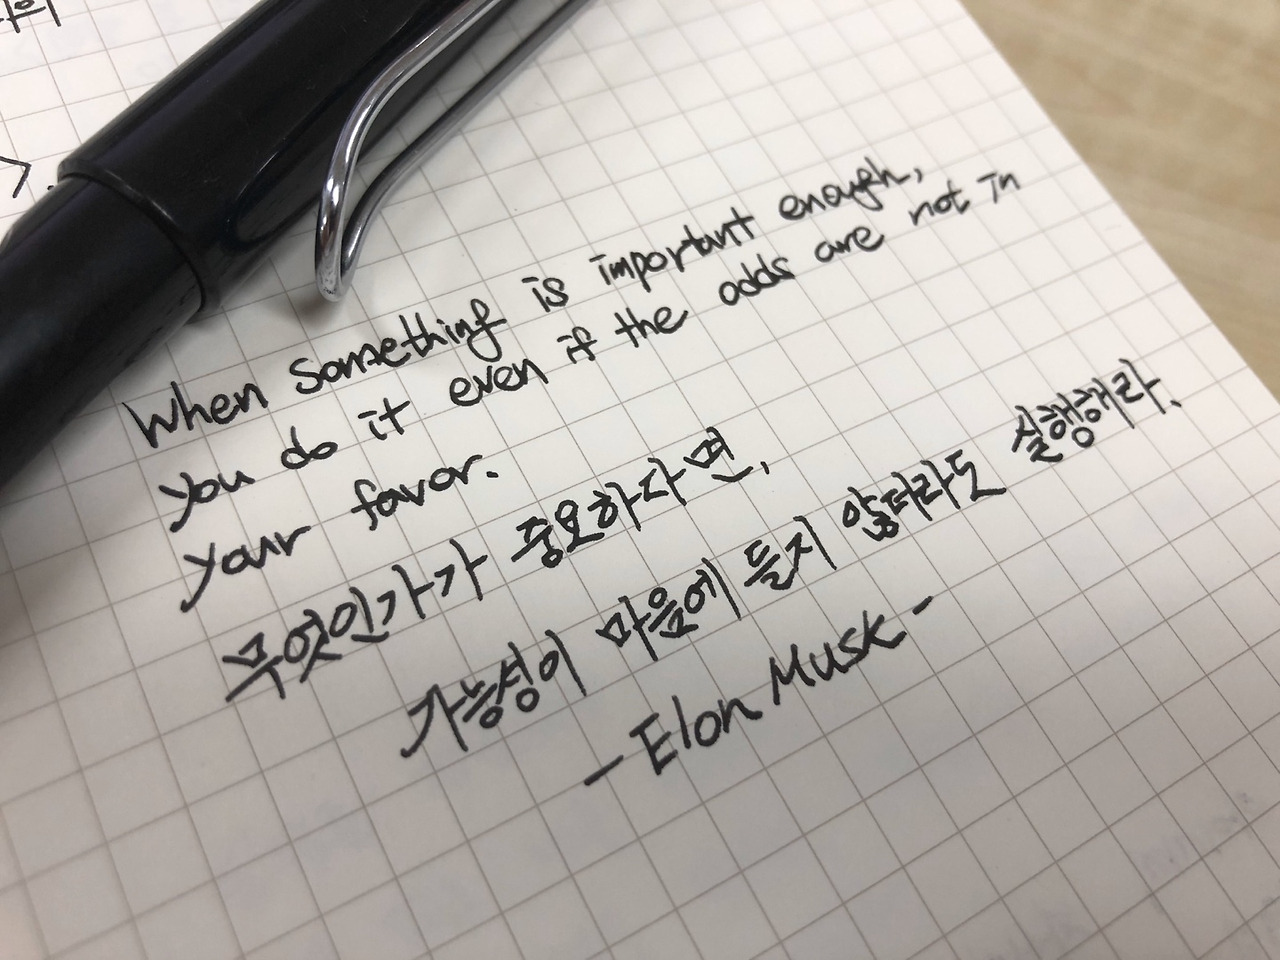 When something is important enough,
you do it even if the odds are not in
your favor.
무엇인가가 중요하다면,
가능성이 마음에 들지 않더라도 실행해라.
- Elon Musk -